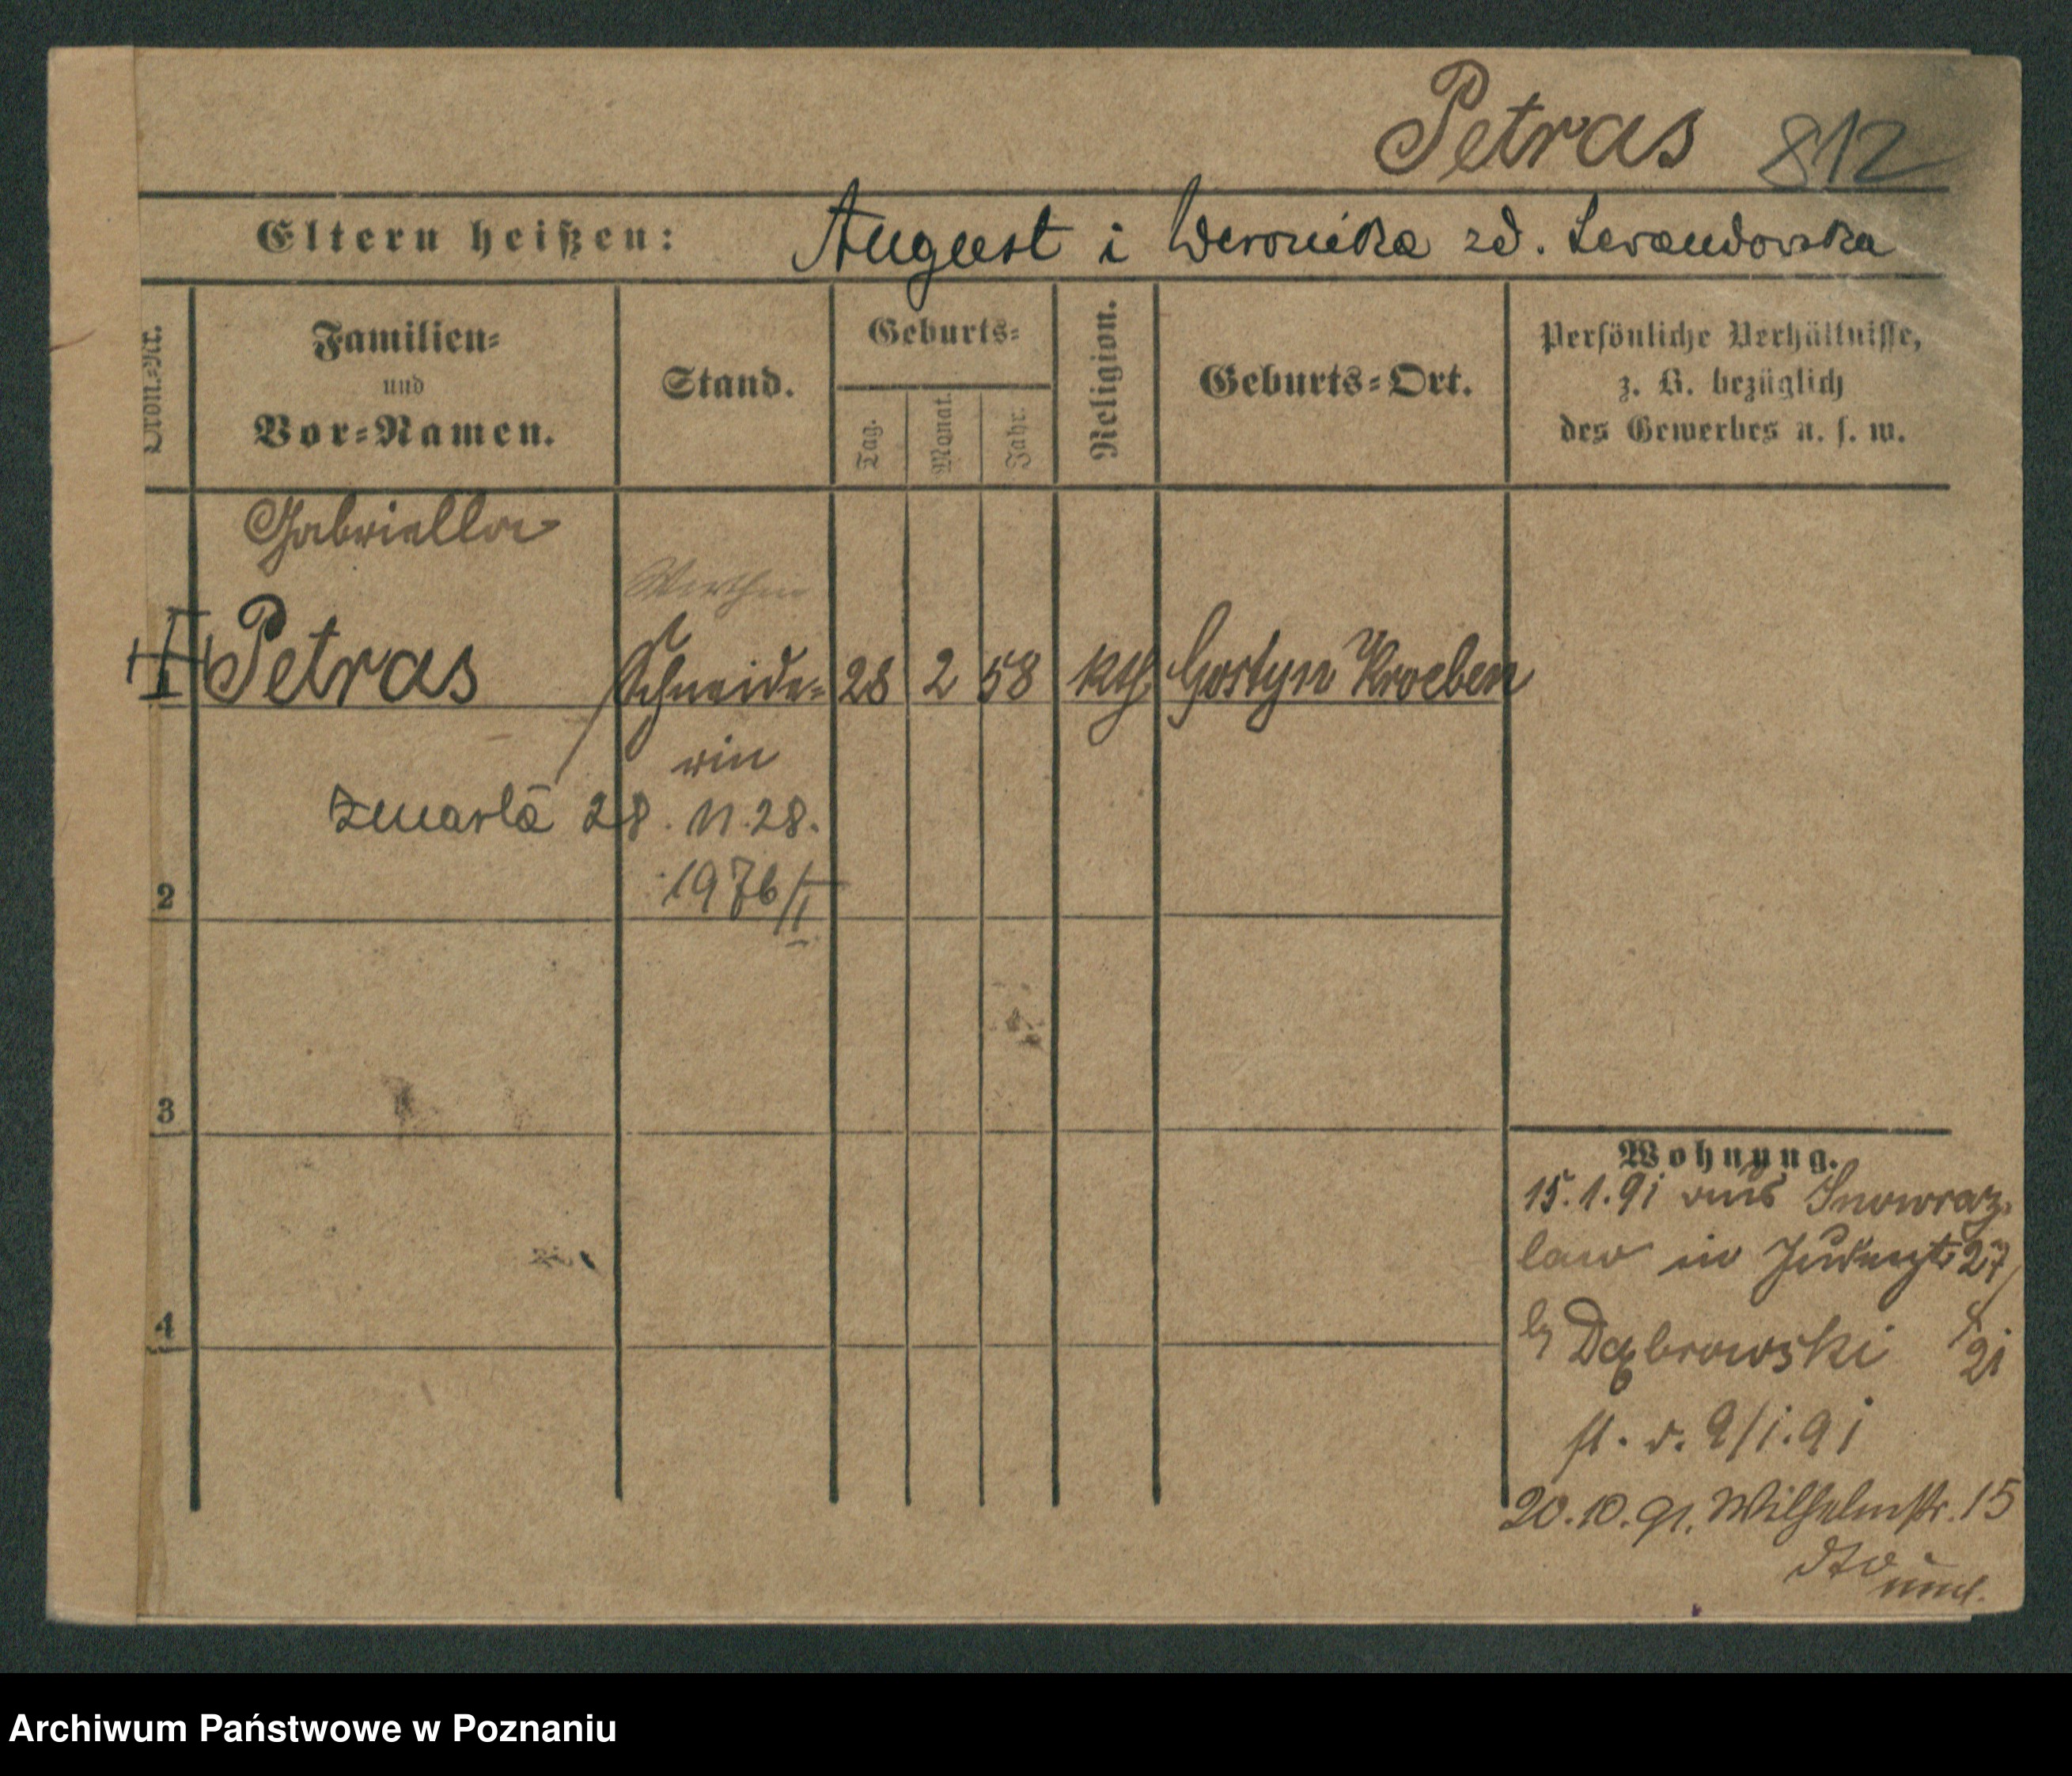 Petras 812
Eltern heißen: August i Weronika zd. Lewandowska
Ordn.-Nr.
Familien-
und
Vor-Namen.
Stand.
Geburts-
Tag.
Monat.
Jahr.
Religion.
Geburts-Ort.
Persönliche Verhältnisse,
z. B. bezüglich
des Gewerbes u. s. w.
Gabriella
Petras Schneide- 28 2 58 kth. Gostyn Kroeben
rin
zmarła 28. 11. 28.
1976/I
2
3
4
Wohnung.
15.1.91 aus Inowraz-
law in 27
Dąbrowski
21
9/1.91
20.10.91. Wilhelmstr. 15
dto
Archiwum Państwowe w Poznaniu